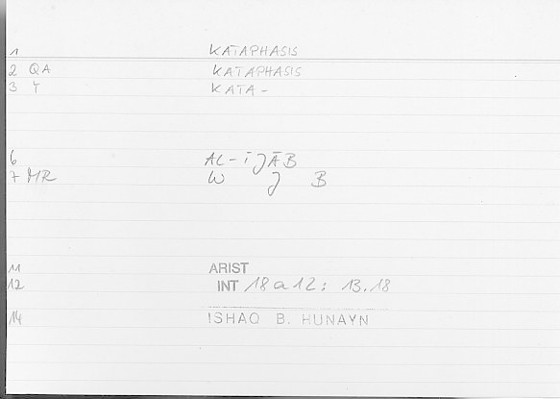 1 KATAPHASIS
2 QA KATAPHASIS
3 Y KATA-
6 AL-ĪJĀB
7 MR W J B
11 ARIST
12 INT 18 a 12; 13.18
14 ISHAQ B. HUNAYN